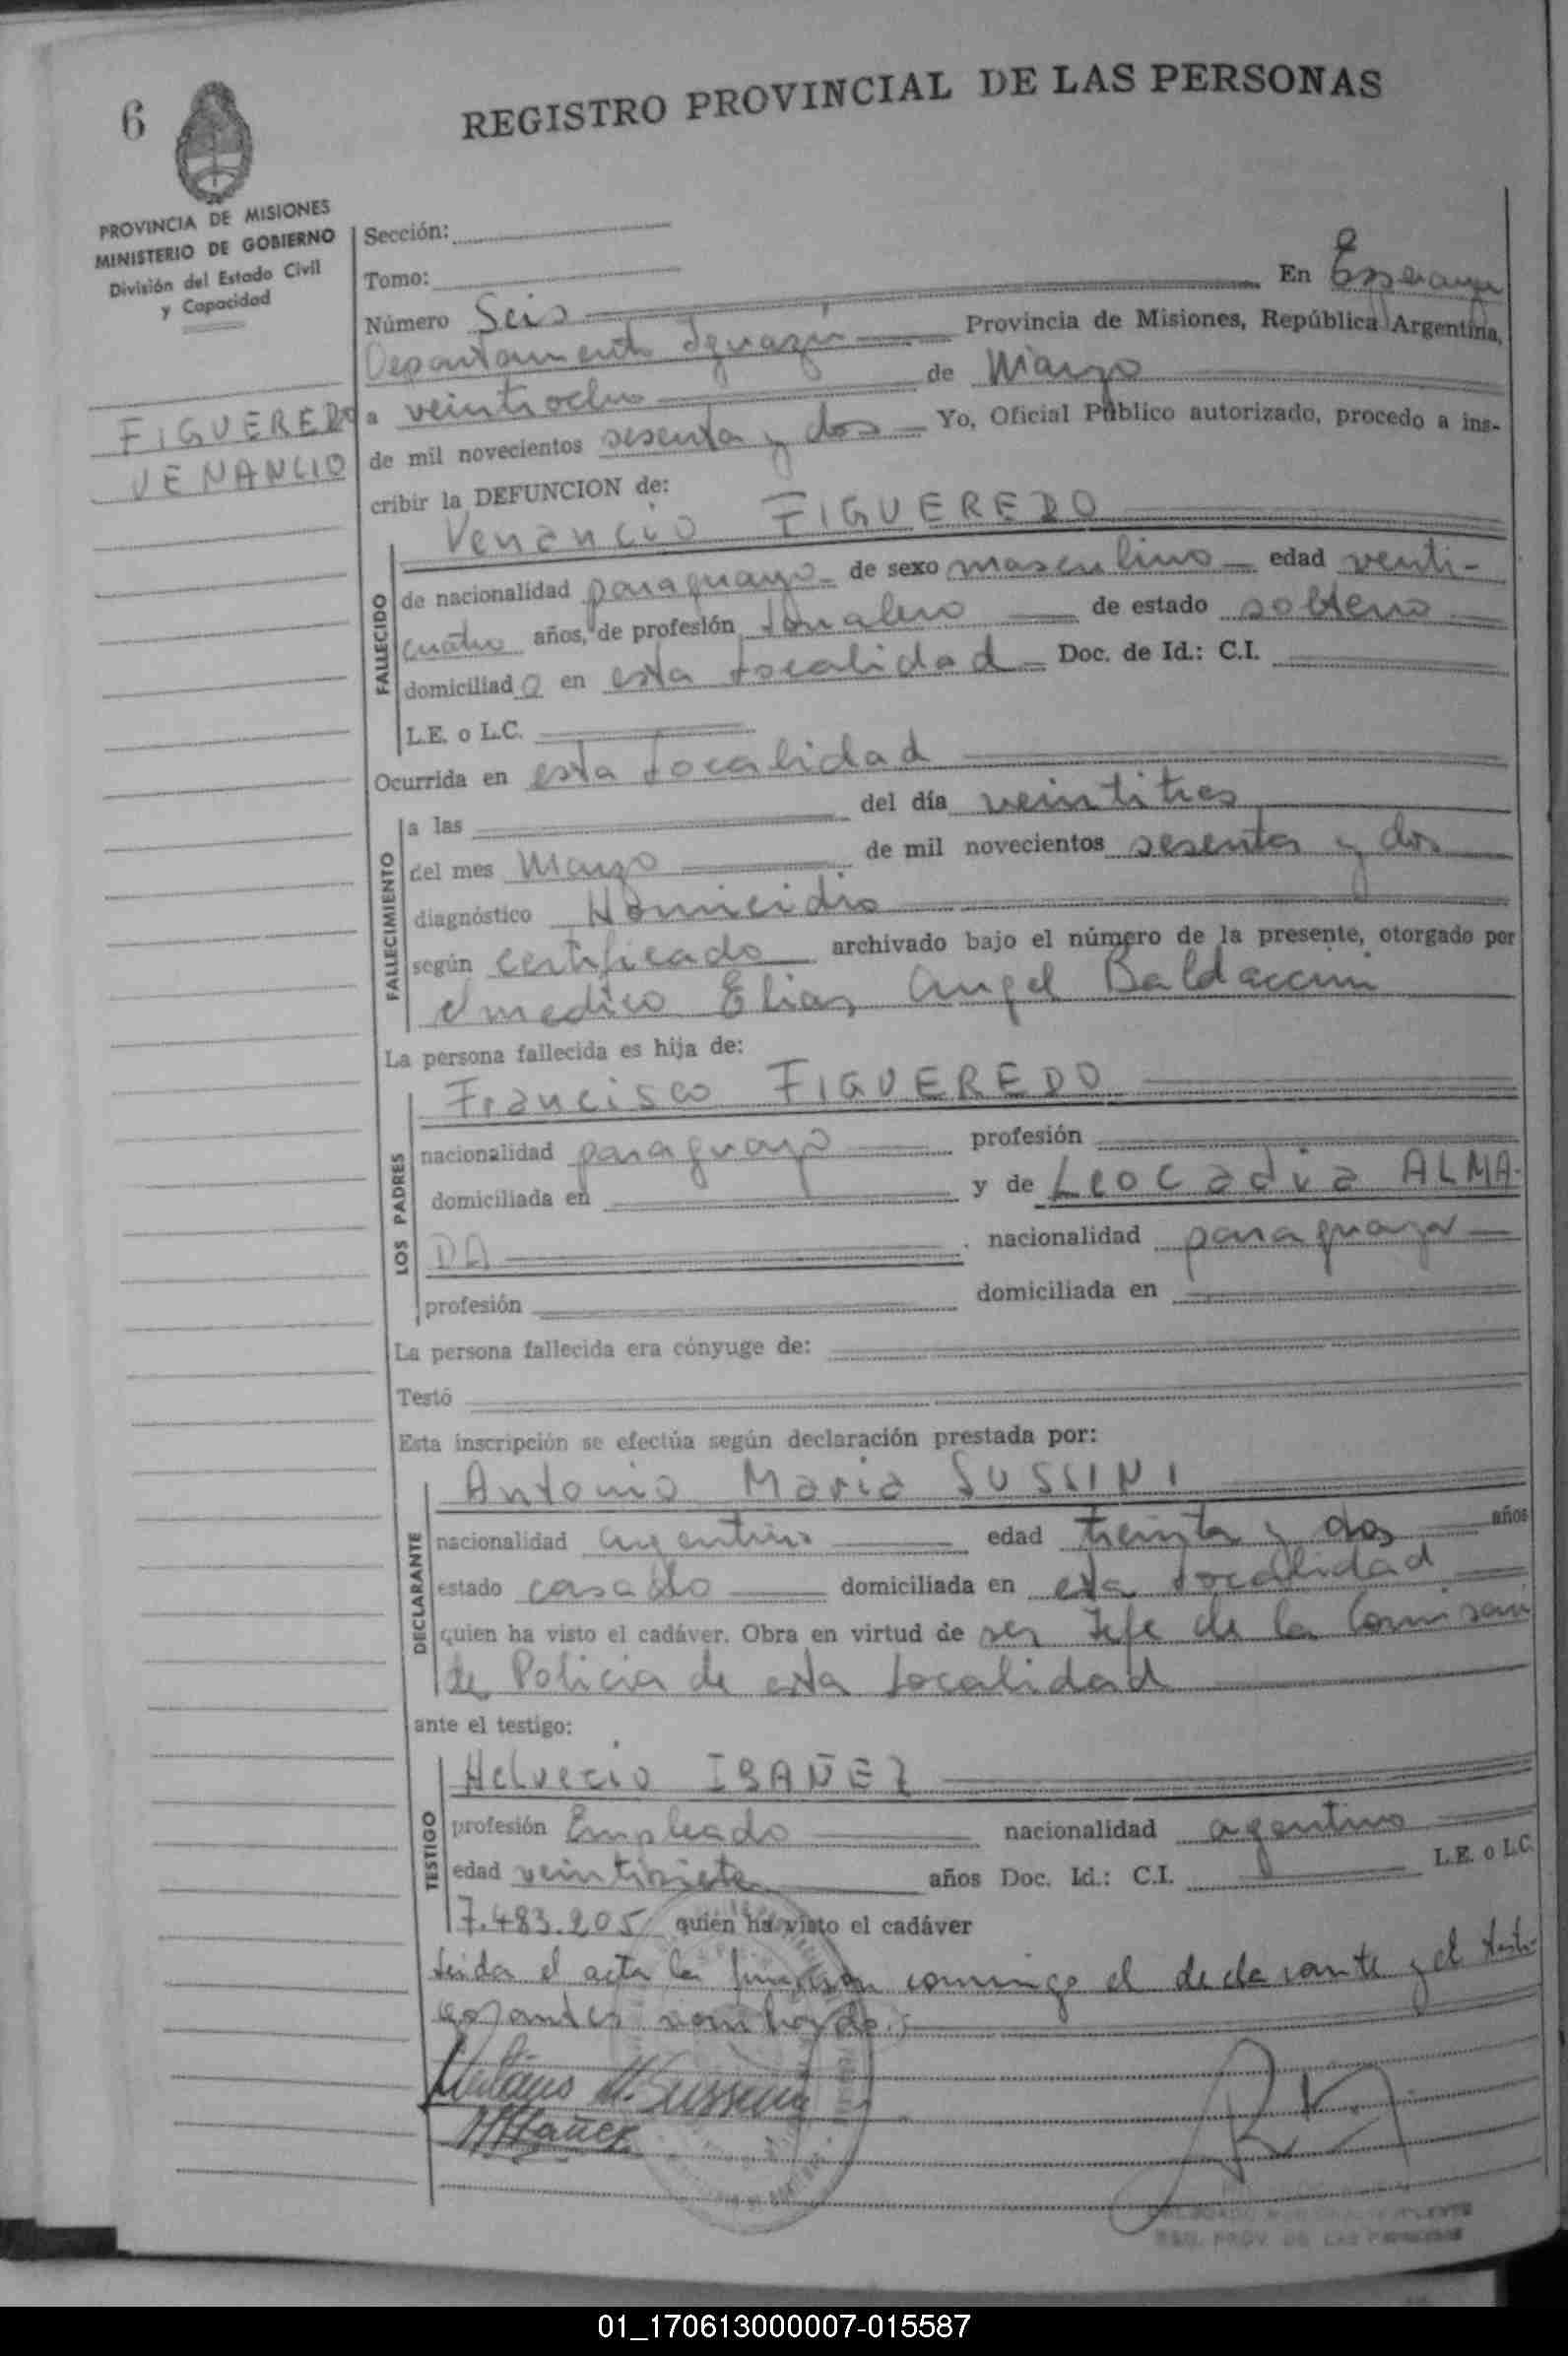 6
REGISTRO PROVINCIAL DE LAS PERSONAS
PROVINCIA DE MISIONES
MINISTERIO DE GOBIERNO
División del Estado Civil
y Capacidad
FIGUEREDO
VENANCIO
Sección:
Tomo:
Número Seis En
Departamento Iguazú Provincia de Misiones, República Argentina,
a veintiocho de Marzo
de mil novecientos sesenta y dos Yo, Oficial Público autorizado, procedo a ins-
cribir la DEFUNCION de:
Venancio FIGUEREDO
FALLECIDO
de nacionalidad paraguayo de sexo masculino edad venti-
cuatro años, de profesión Jornalero de estado soltero
domiciliado en esta localidad Doc. de Id.: C.I.
L.E. o L.C.
Ocurrida en esta localidad
FALLECIMIENTO
a las del día veintitres
del mes Marzo de mil novecientos sesenta y dos
diagnóstico Homicidio
según certificado archivado bajo el número de la presente, otorgado por
el medico Elias Angel Baldaccini
La persona fallecida es hija de:
LOS PADRES
Francisco FIGUEREDO
nacionalidad paraguayo profesión
domiciliada en y de Leocadia ALMA-
DA nacionalidad paraguaya
profesión domiciliada en
La persona fallecida era cónyuge de:
Testó
Esta inscripción se efectúa según declaración prestada por:
DECLARANTE
Antonio Maria SUSSINI
nacionalidad argentino edad treinta y dos años
estado casado domiciliada en esta localidad
quien ha visto el cadáver. Obra en virtud de ser Jefe de la
de Policia de esta localidad
ante el testigo:
TESTIGO
Helvecio IBAÑEZ
profesión Empleado nacionalidad argentino
edad veintisiete años Doc. Id.: C.I. L.E. o L.C.
7.483.205 quien ha visto el cadáver
Leida el acta la firman conmigo el declarante y el testi-
go antes nombrado
REG. PROV. DE LAS PERSONAS
01_170613000007-015587